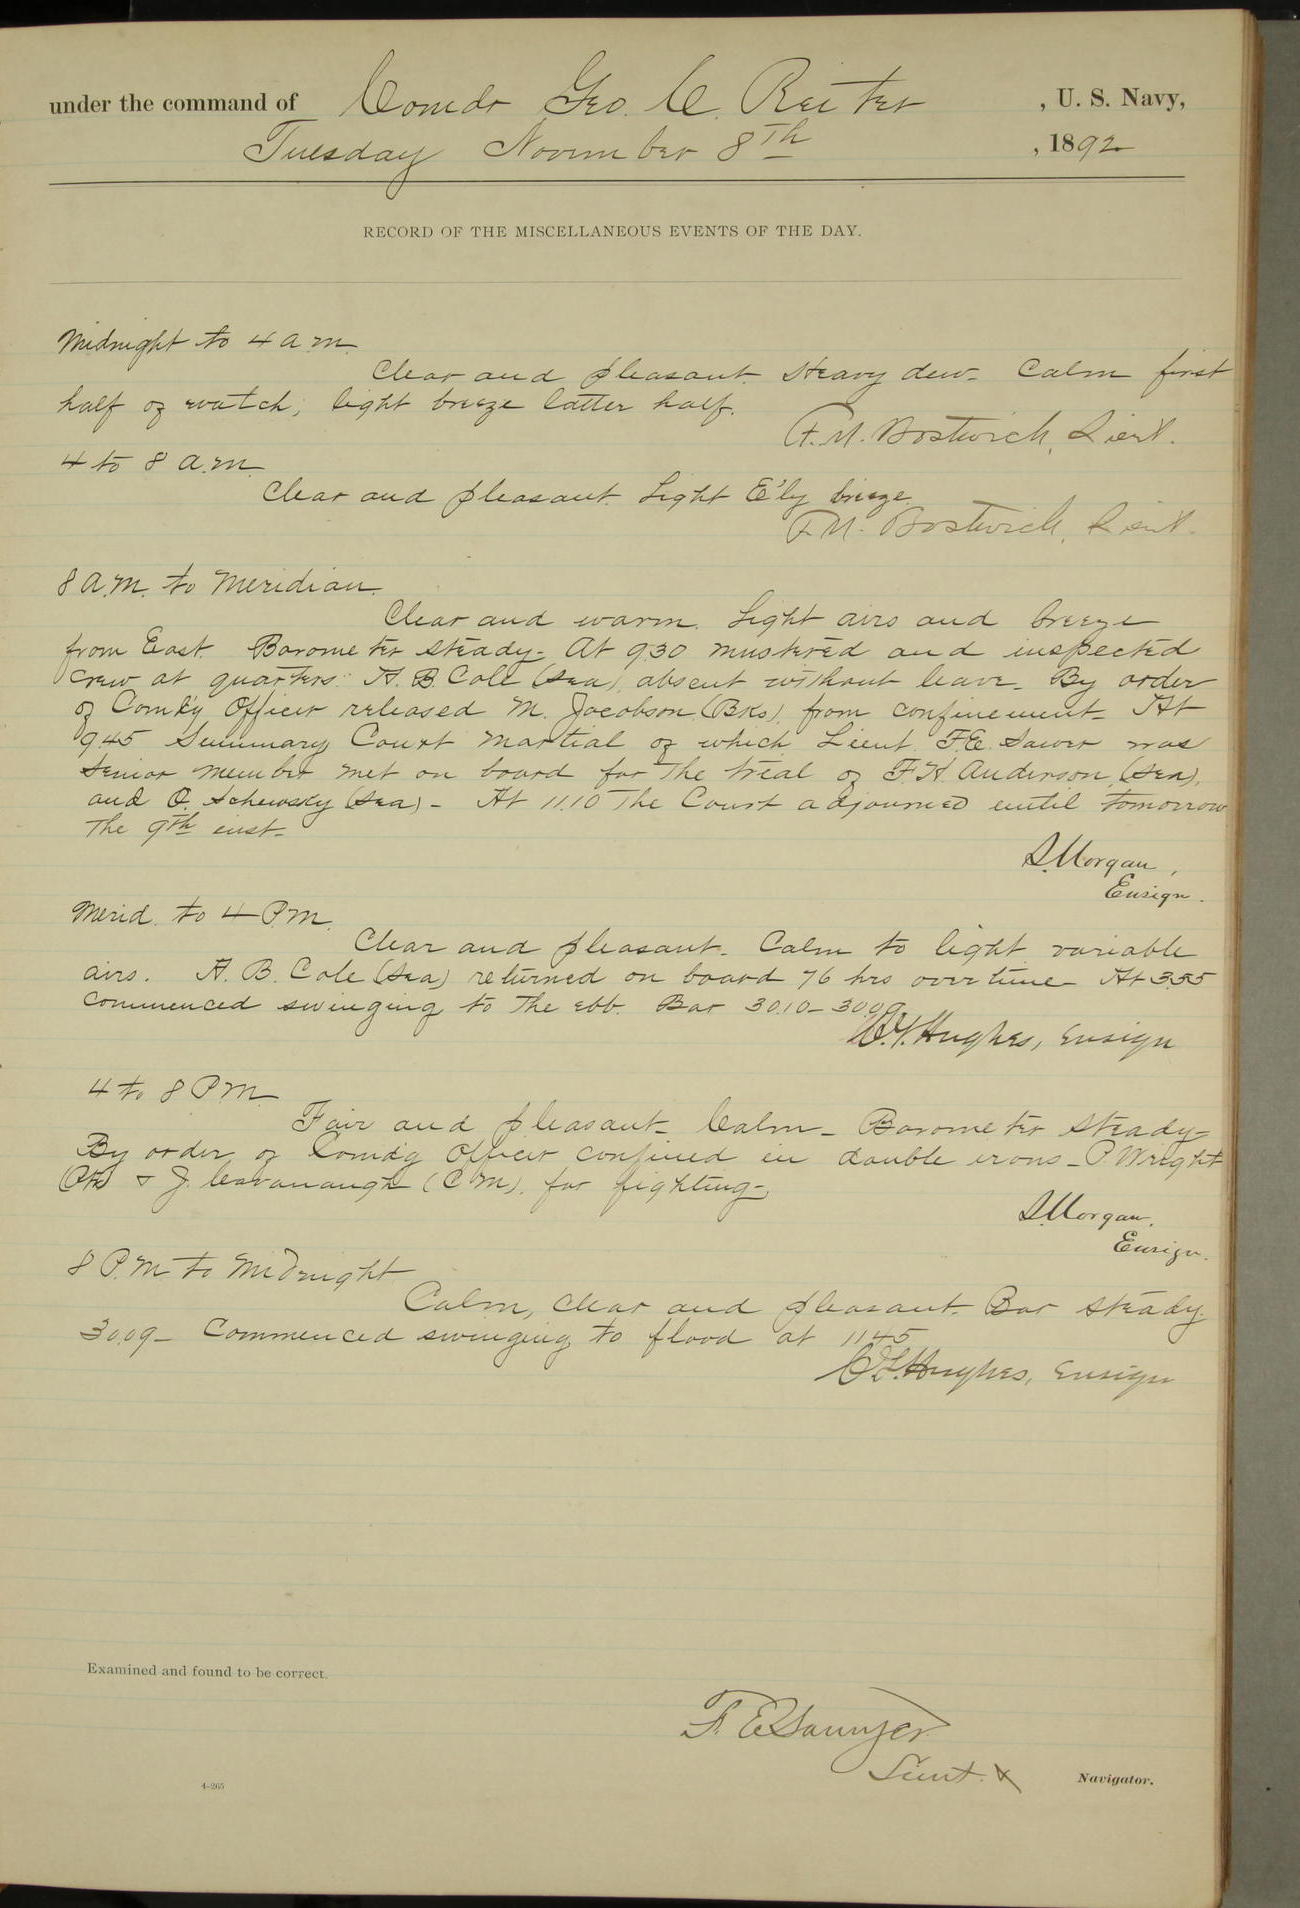 under the command of Comdr Geo. C. Reiter, U. S. Navy,
Tuesday November 8th, 1892
RECORD OF THE MISCELLANEOUS EVENTS OF THE DAY.
Midnight to 4 a.m.
Clear and pleasant. Heavy dew. Calm first
half of watch, light breeze latter half.
F. M. Bostwick, Lieut.
4 to 8 a.m.
Clear and pleasant. Light E'ly breeze.
F. M. Bostwick, Lieut.
8 A.M. to Meridian.
Clear and warm. Light airs and breeze
from East. Barometer steady. At 9.30 mustered and inspected
crew at quarters. A. B. Cole (Sea) absent without leave. By order
of Officer released M. Jacobson (Bks) from confinement. At
9.45 Summary Court Martial of which Lieut. F.E. Sawer was
Senior member met on board for the trial of F.H. Anderson (Sea),
and O. Schewsky (Sea) - At 11.10 The Court adjourned until tomorrow
the 9th inst.
S. Morgan,
Ensign.
Merid. to 4 P.M.
Clear and pleasant. Calm to light variable
airs. A. B. Cole (Sea) returned on board 76 hrs overtime. At 3.55
commenced swinging to the ebb. Bar 30.10 - 30.09
Hughes, Ensign
4 to 8 P.M.
Fair and pleasant. Calm. Barometer steady.
By order of Comdg Officer confined in double irons - P. Wright
& J. Cavanaugh (C M). for fighting.
S. Morgan.
Ensign.
8 P.M. to Midnight
Calm, clear and pleasant. Bar steady.
30.09 - Commenced swinging to flood at 11.45
Hughes, Ensign
Examined and found to be correct.
F. E. Sawyer
Lieut. & Navigator.
4-265